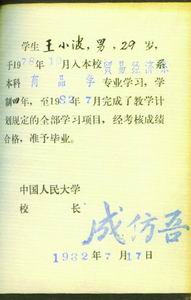 学生 王小波，男，29 岁，
于1978年10月入本校贸易经济系
本科 商品学 专业学习，学
制四年，至1982年7月完成了教学计
划规定的全部学习项目，经考核成绩
合格，准予毕业。
中国人民大学
校 长 成仿吾
1982年7月17日